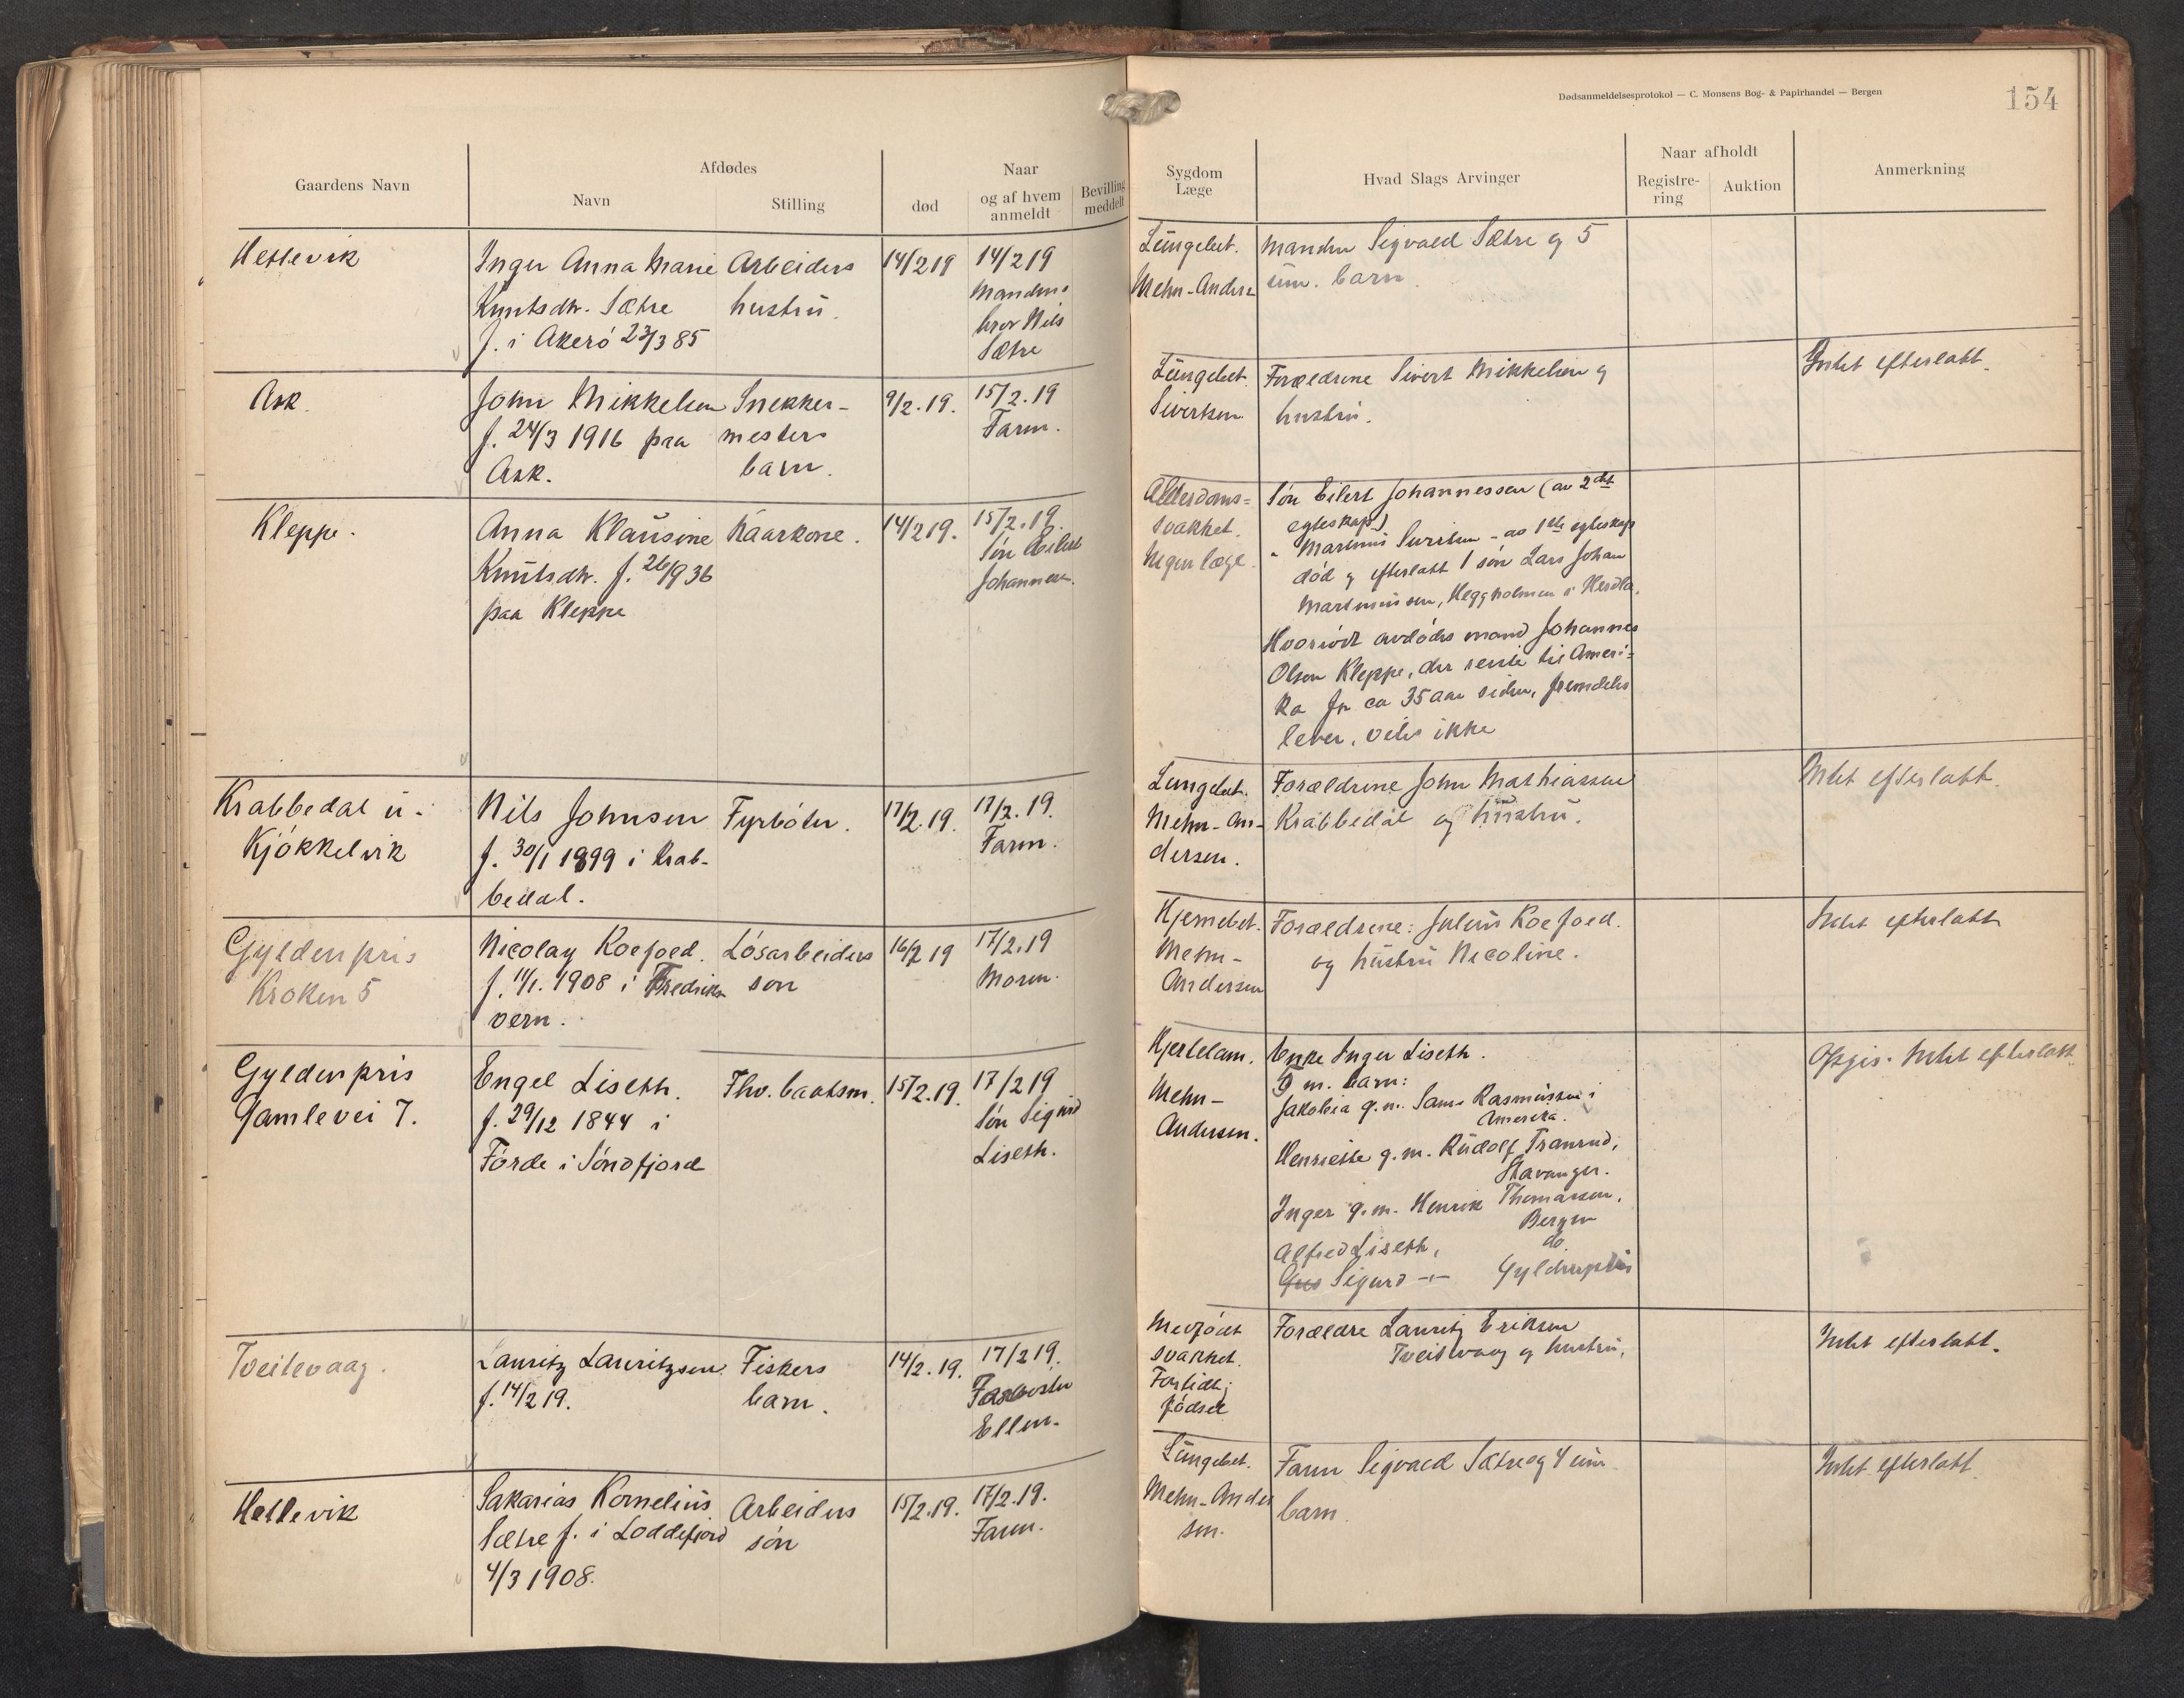 Dødsanmeldelsesprotokol — C. Monsens Bog- & Papirhandel — Bergen
154
Gaardens Navn
Afdødes
Navn
Stilling
død
Naar
og af hvem
anmeldt
Bevilling
meddelt
Sygdom
Læge
Hvad Slags Arvinger
Naar afholdt
Registre-
ring
Auktion
Anmerkning
Hetlevik
Inger Anna Marie
Knutsdtr. Sætre
f. i Akerö 23/3 85
Arbeiders
hustru.
14/2 19
14/2 19
Mandens
bror Nils
Sætre
Lungebet.
Mehn-Anders
Manden Sigvald Sætre og 5
um. barn
Ask.
John Mikkelsen
f. 24/3 1916 paa
Ask.
Snekker-
mesters
barn.
9/2.19.
15/2.19
Faren.
Lungebet.
Sivertsen
Forældrene Sivert Mikkelsen og
hustru.
Intet efterlatt.
Kleppe.
Anna Klausine
Knutsdtr. f. 26/9 36
paa Kleppe
Kaarkone.
14/2 19.
15/2.19.
Søn Eilert
Johannessen.
Alderdoms-
svakhet.
Ingen læge.
Søn Eilert Johannessen (av 2det
egteskap)
" Martinus Sivertsen - av 1ste egteskap
død og efterlatt 1 søn Lars Johan
Martinussen, Heggholmen i Herdla.
Hvorvidt avdødes mand Johannes
Olsen Kleppe, der reiste til Ameri-
ka for ca 35 aar siden, fremdeles
lever, vites ikke
Krabbedal u.
Kjøkkelvik
Nils Johnsen
f. 30/1 1899 i Krab-
bedal.
Fyrbøter.
17/2.19.
17/2.19.
Faren.
Lungebet.
Mehn-An-
dersen.
Forældrene John Mathiassen
Krabbedal og hustru.
Intet efterlatt.
Gyldenpris
Kroken 5
Nicolay Koefoed.
f. 11/1. 1908 i Fredriks
vern.
Løsarbeiders
søn
16/2 19
17/2.19
Moren.
Hjernebet.
Mehn-
Andersen
Forældrene: Julius Koefoed.
og hustru Nicoline.
Intet efterlatt
Gyldenpris
Gamlevei 7.
Engel Liseth.
f. 29/12 1844 i
Førde i Søndfjord
Fhv. baatsm.
15/2.19.
17/2 19
Søn Sigurd
Liseth.
Hjertelam.
Mehn-
Andersen.
Enke Inger Liseth.
5 m. barn:
Jakobia g.m. Sam. Rasmussen i
Amerika.
Henriette g.m. Rudolf Tranrud,
Stavanger.
Inger g.m. Henrik Thomassen,
Bergen
Alfred Liseth, do.
Sigurd -"- Gyldenpris
Opgis. Intet efterlatt
Tveitevaag.
Lauritz Lauritzsen
f. 14/2 19.
Fiskers
barn.
14/2.19.
17/2 19.
Ellen.
Medfødt
svakhet.
Fortidl.
fødsel
Forældre Lauritz Eriksen
Tveitevaag og hustru.
Intet efterlatt.
Hetlevik
Sakarias Kornelius
Sætre f. i Loddefjord
4/3 1908.
Arbeiders
søn
15/2.19.
17/2.19.
Faren.
Lungebet.
Mehn-Ander
sen.
Faren Sigvald Sætre og 4 um.
barn.
Intet efterlatt.